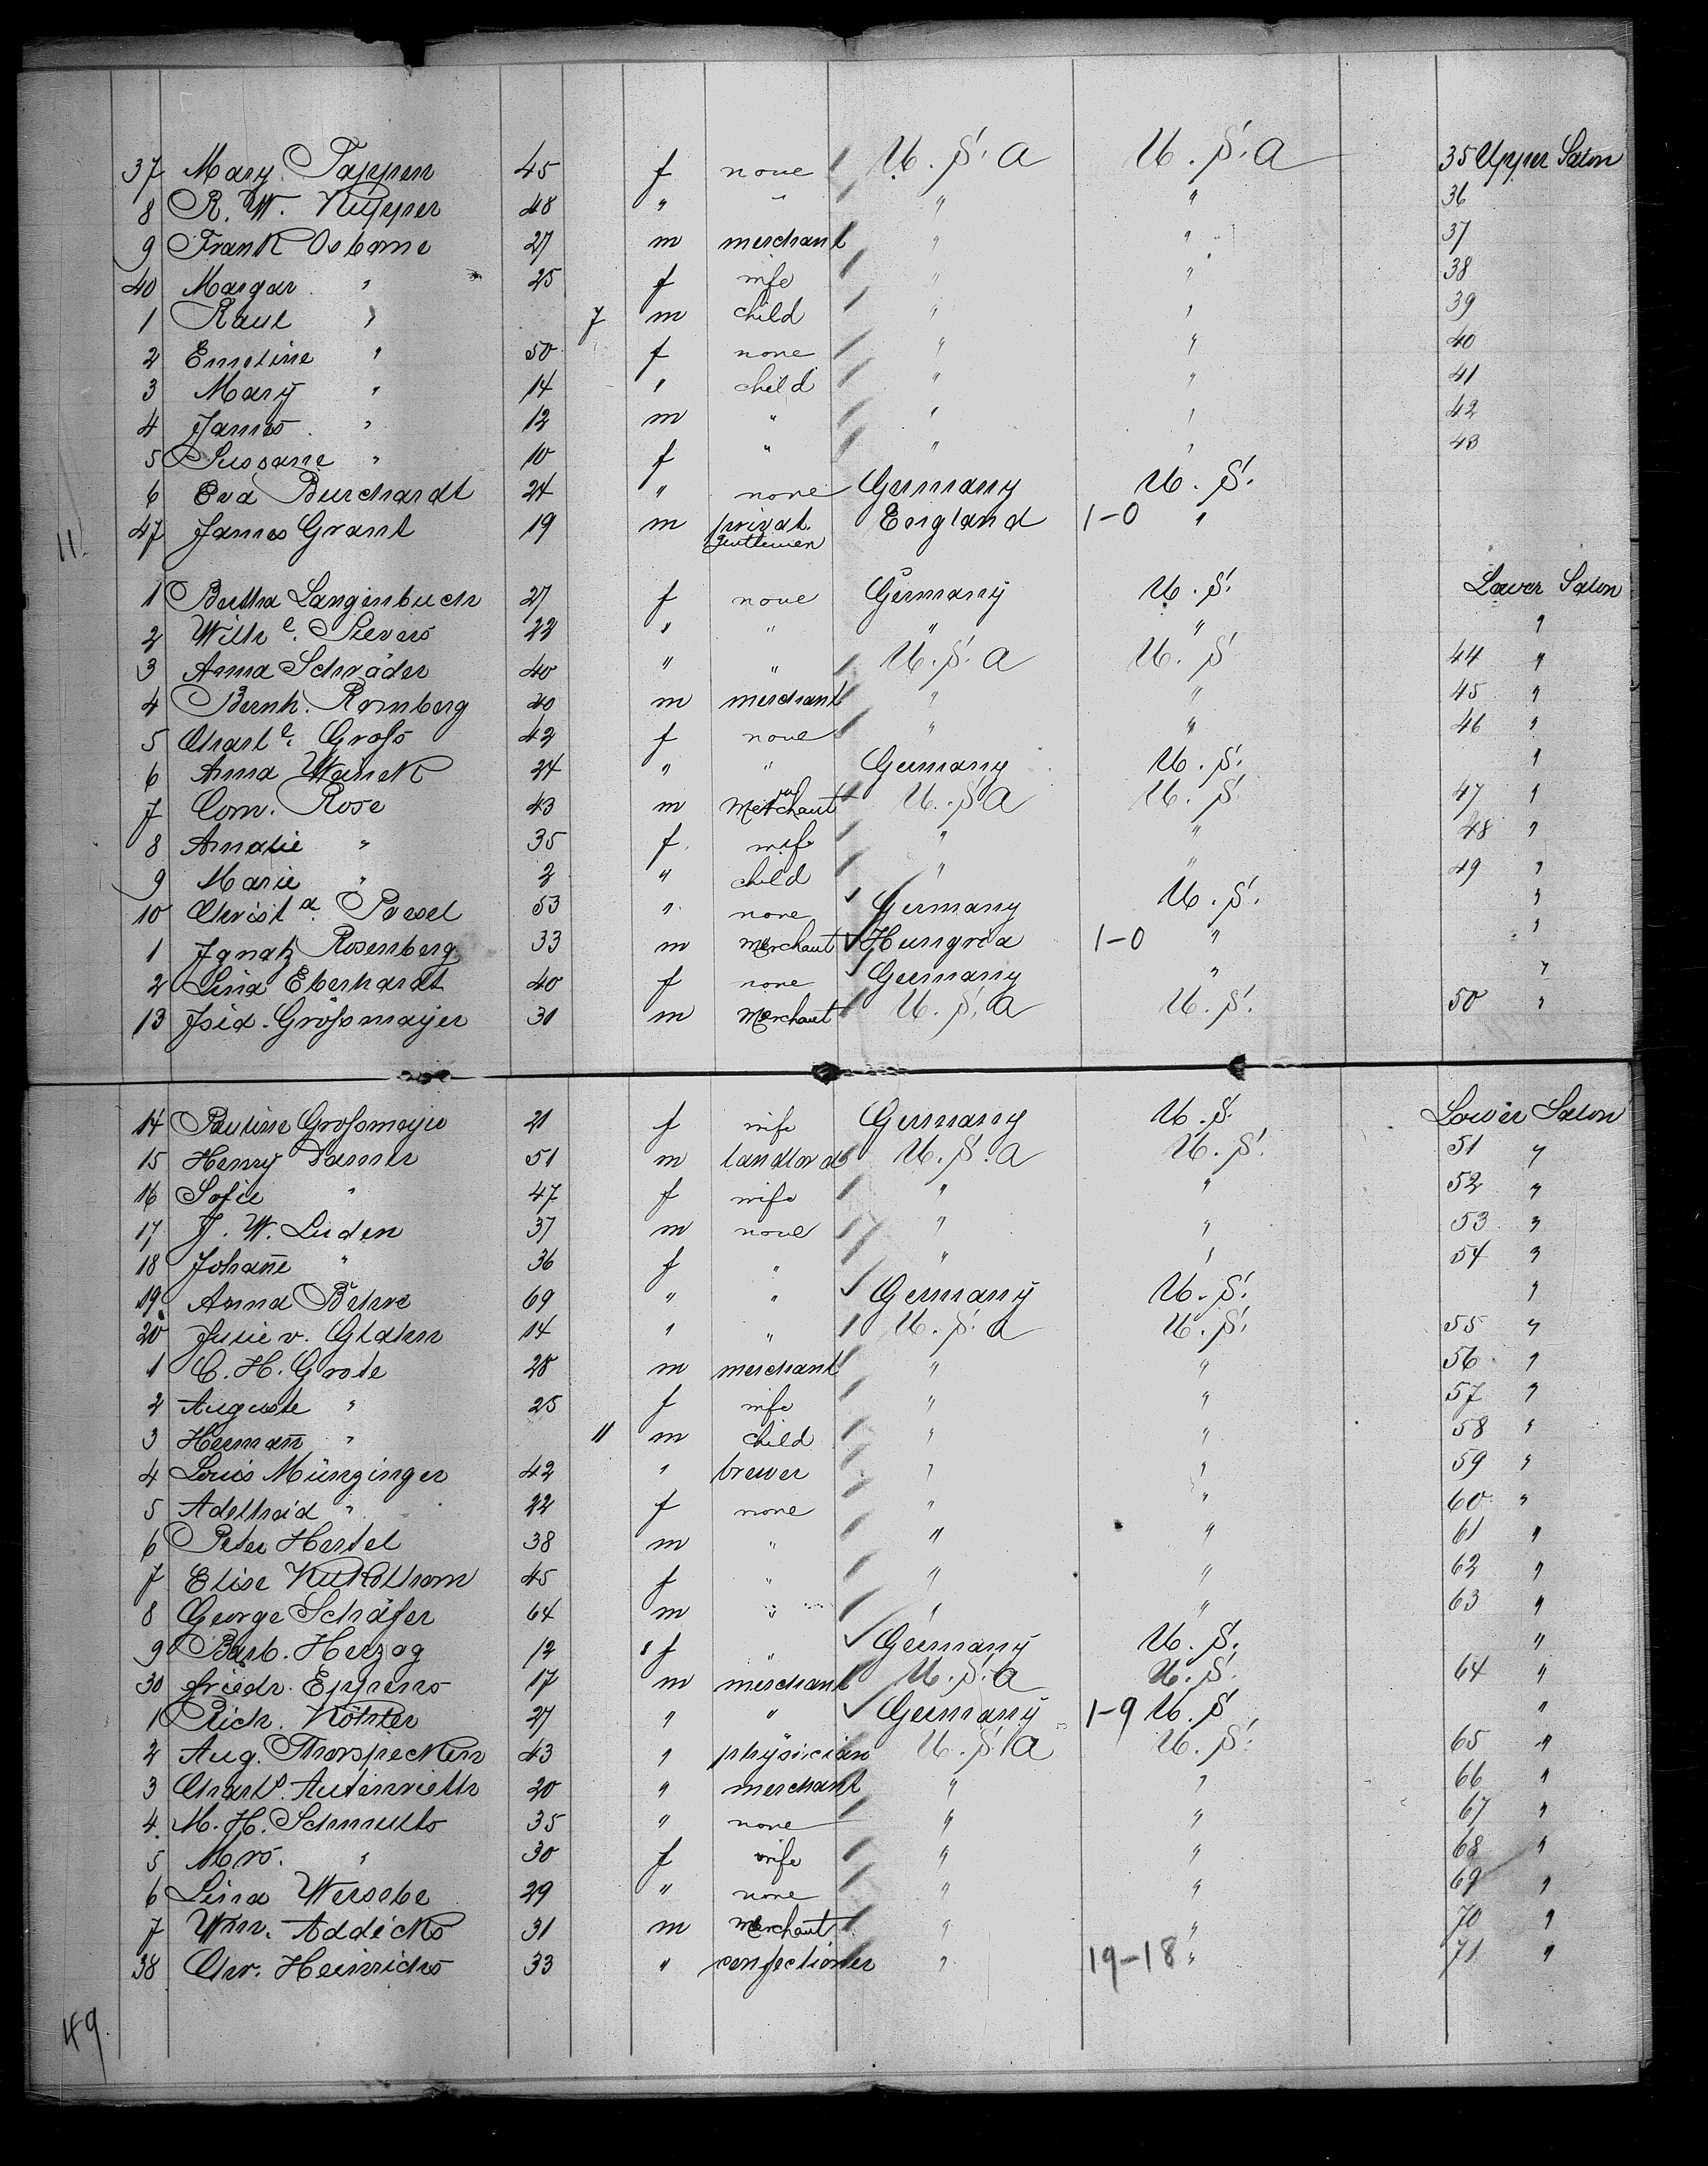 37 Mary Tappen 45 f none U.S.A U.S.A 35 Upper Salon
8 R. W. Kupper 48 " " " " 36
9 Frank Osborne 27 m merchant " " 37
40 Margar " 25 f wife " " 38
1 Raul " 7 m child " " 39
2 Emeline " 50 f none " " 40
3 Mary " 14 " child " " 41
4 James " 12 m " " " 42
5 Sussane " 10 f " " " 43
6 Eva Burchardt 24 " none Germany U. S.
11. 47 James Grant 19 m privat. gentlemen England 1-0 "
1 Bertha Langenbuch 27 f none Germany U. S. Lower Salon
2 Wilh e. Sievers 22 " " " " "
3 Anna Schräder 40 " " U.S.A U. S. 44 "
4 Bernh. Romberg 40 m merchant " " 45 "
5 Charl e. Groſs 42 f none " " 46 "
6 Anna Wanek 24 " " Germany U. S. "
7 Corn. Rose 43 m Merchant U.S.A U. S. 47 "
8 Amalie " 35 f wife " " 48 "
9 Marie " 2 " child " " 49 "
10 Christ a. Poesel 53 " none Germany U. S. "
1 Ignatz Rosenberg 33 m Merchant Hungria 1-0 " "
2 Lina Eberhardt 40 f none Germany " "
13 Isid. Groſsmayer 31 m Merchant U.S.A U. S. 50 "
14 Pauline Groſsmayer 21 f wife Germany U. S. Lower Salon
15 Henry Damer 51 m landlord U.S.A U. S. 51 "
16 Sofie " 47 f wife " " 52 "
17 J. W. Luden 37 m none " " 53 "
18 Johañe " 36 f " " " 54 "
19 Anna Behre 69 " " Germany U. S. "
20 Julie v. Glahn 14 " " U.S.A U. S. 55 "
1 C. H. Grote 28 m merchant " " 56 "
2 Auguste " 25 f wife " " 57 "
3 Hermañ " 11 m child " " 58 "
4 Louis Münzinger 42 " brewer " " 59 "
5 Adelheid " 22 f none " " 60 "
6 Peter Hertel 38 m " " " 61 "
7 Elise 45 f " " " 62 "
8 George Schäfer 64 m " " " 63 "
9 Barb. Herzog 12 f " Germany U. S. "
30 Friedr. Eppens 17 m merchant U.S.A U. S. 64 "
1 Rich. Köhler 27 " " Germany 1-9 U. S. "
2 Aug. Thorspecken 43 " physician U.S.A U. S. 65 "
3 Charls. Autenrieth 20 " merchant " " 66 "
4 M. H. Schmults 35 " none " " 67 "
5 Mrs. " 30 f wife " " 68 "
6 Lina Wersebe 29 " none " " 69 "
7 Wm. Addicks 31 m Merchant " " 70 "
38 Chr. Heinrichs 33 " confectioner " 19-18 " 71 "
49.